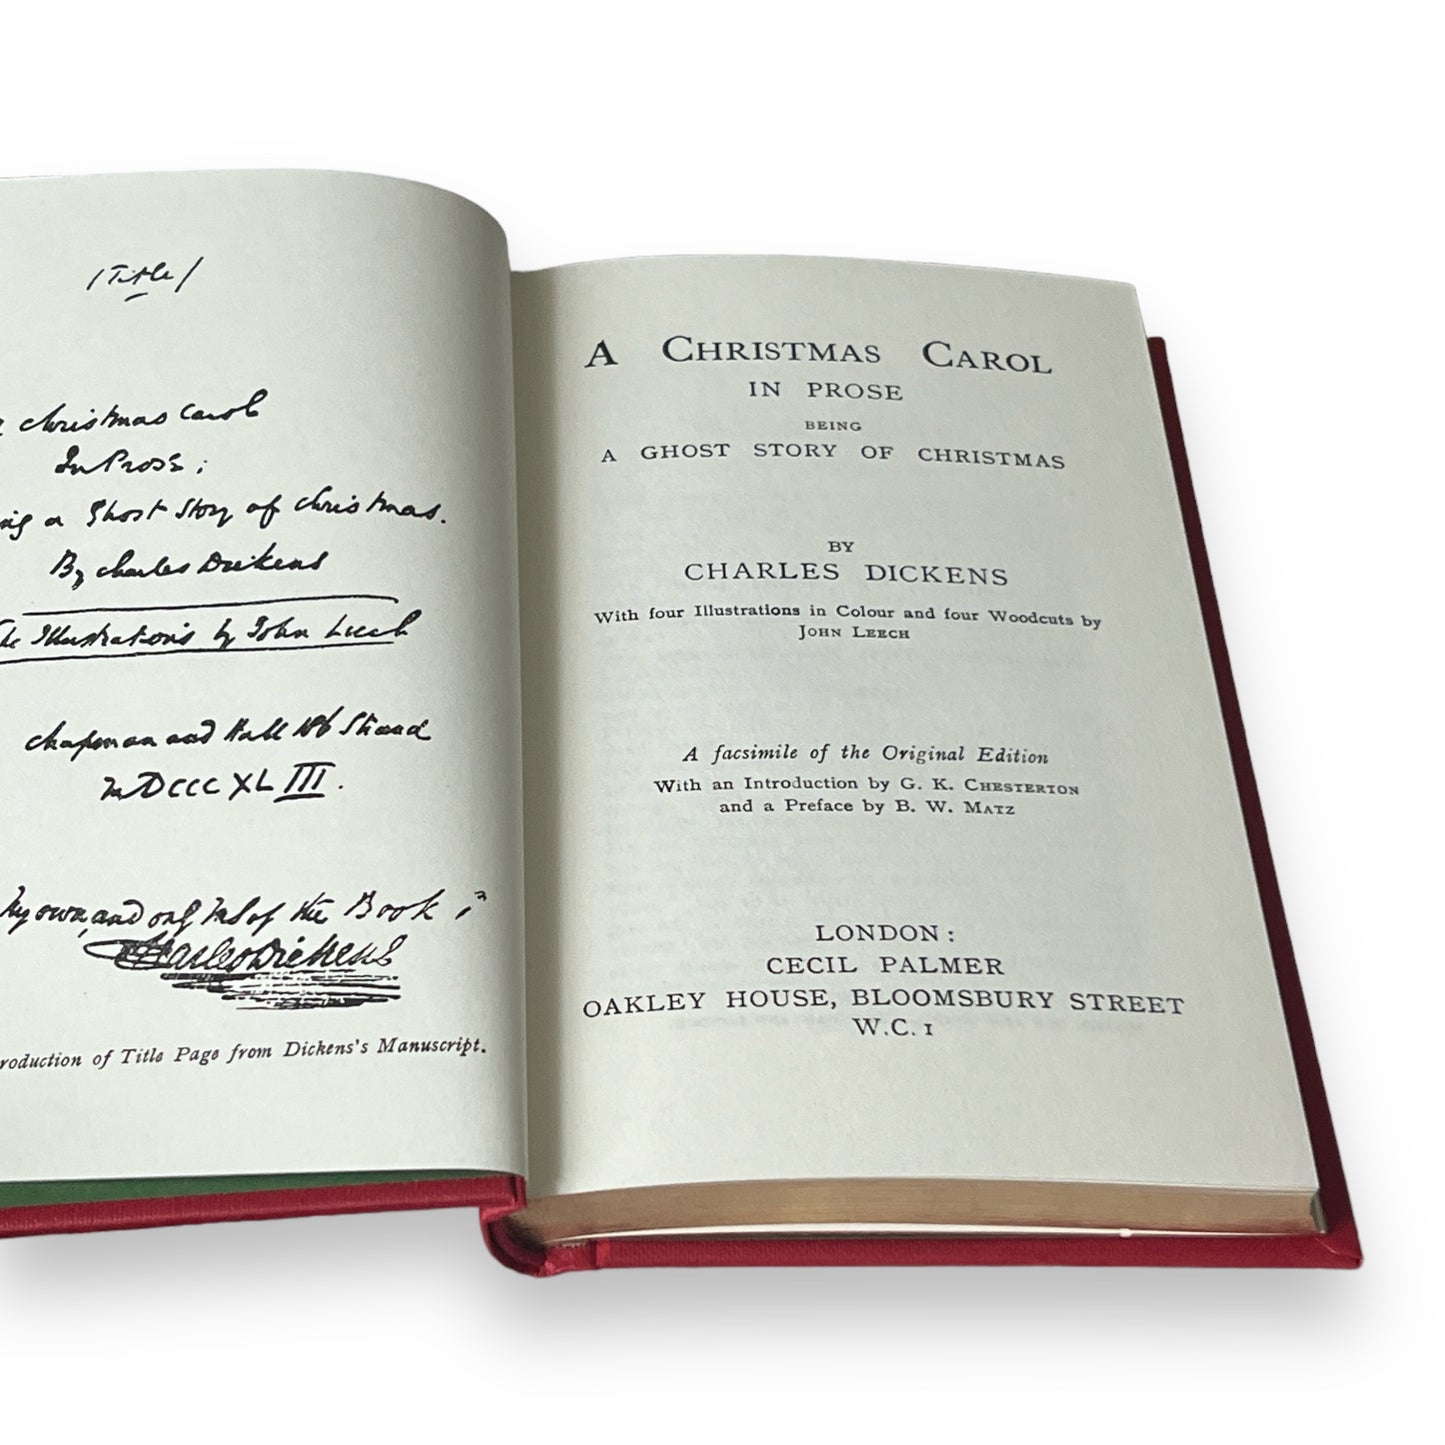 (Title)
Christmas Carol
In Prose;
a Ghost Story of Christmas.
By Charles Dickens
The Illustrations by John Leech
Chapman and Hall 186 Strand
MDCCCXLIII.
My own, and only MS of the Book
Charles Dickens
roduction of Title Page from Dickens's Manuscript.
A CHRISTMAS CAROL
IN PROSE
BEING
A GHOST STORY OF CHRISTMAS
BY
CHARLES DICKENS
With four Illustrations in Colour and four Woodcuts by
JOHN LEECH
A facsimile of the Original Edition
With an Introduction by G. K. CHESTERTON
and a Preface by B. W. MATZ
LONDON:
CECIL PALMER
OAKLEY HOUSE, BLOOMSBURY STREET
W.C. 1